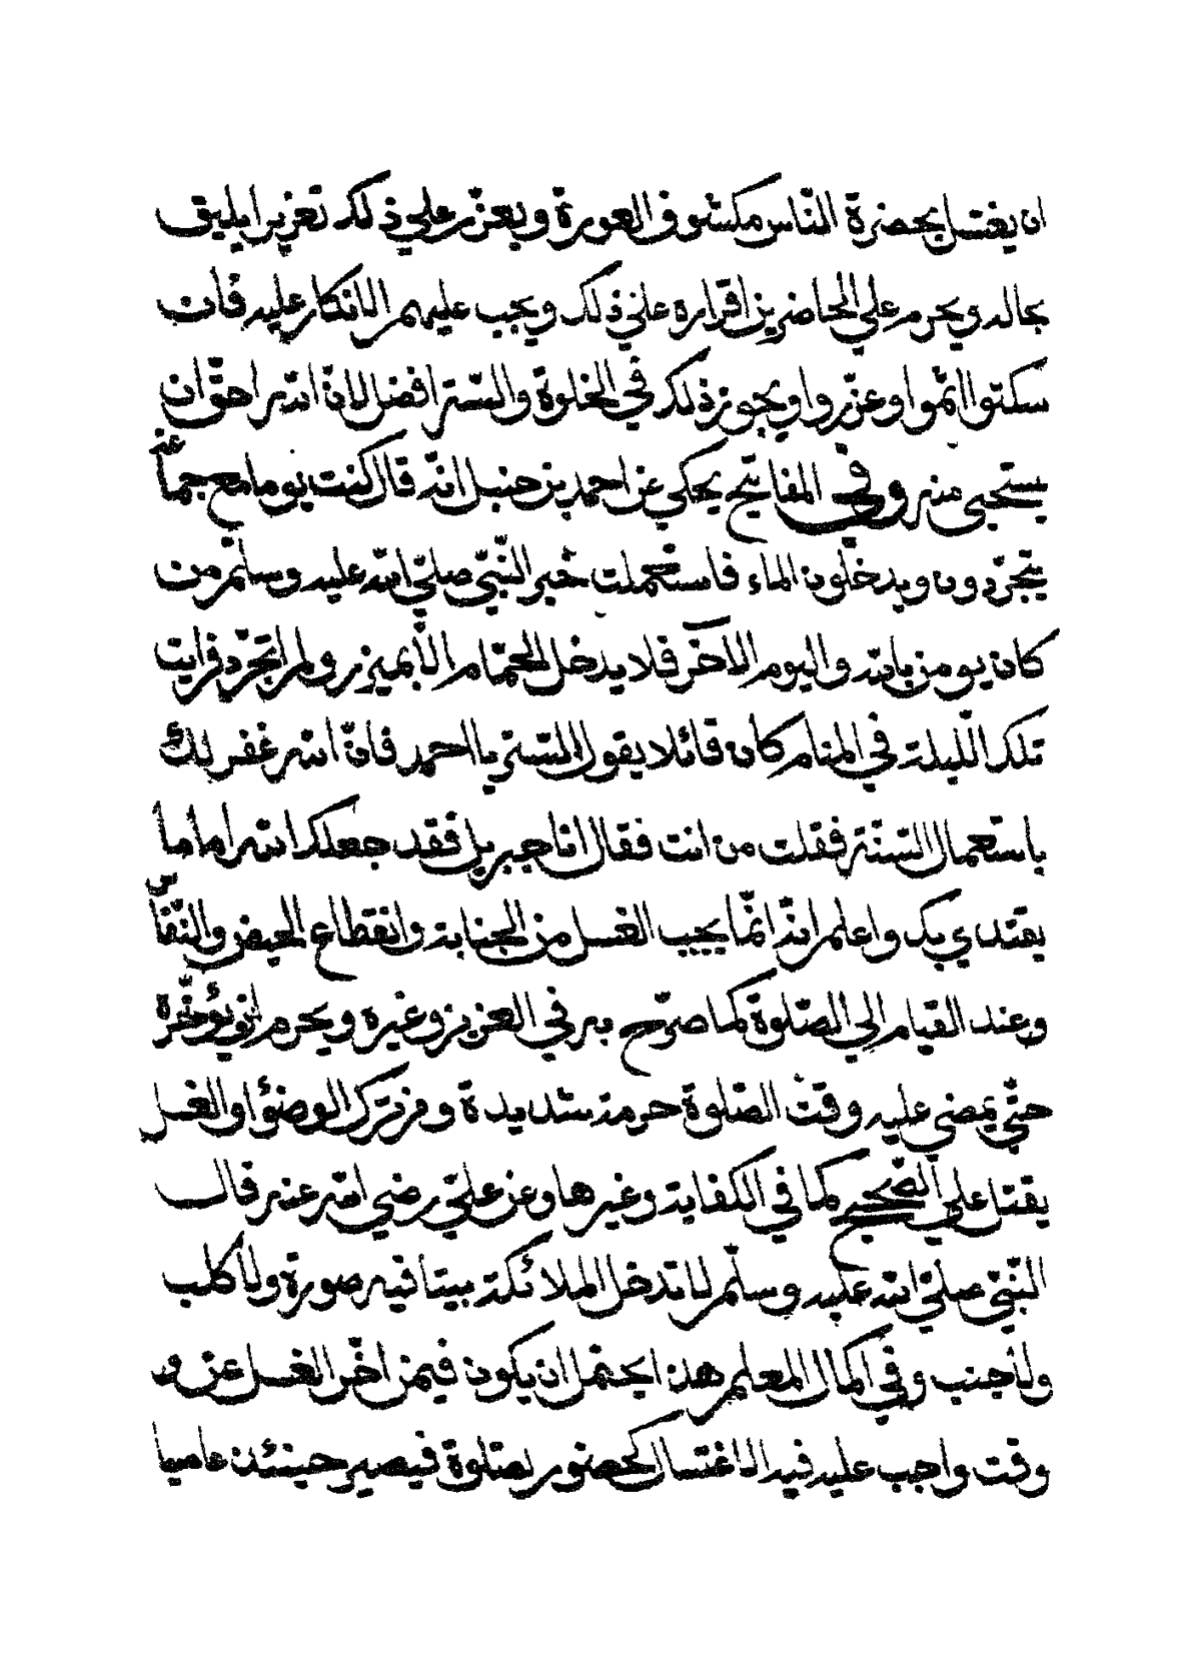 ان يغتسل بحضرة الناس مكشوف العورة ويعزّر علي ذلك تعزيرا يليق
بحاله ويحرم علي الحاضرين اقراره علي ذلك ويجب عليهم الانكار عليه فان
سكتوا اثموا وعزّروا ويجوز ذلك في الخلوة والستر افضل لانّ الله احقّ ان
يستحيى منه وفي المفاتيح يحكي عن احمد بن حنبل انّه قال كنت يوما مع جماعة
يتجرّدون ويدخلون الماء فاستعملت خبر النّبيّ صلّي الله عليه وسلّم من
كان يومن بالله واليوم الآخر فلا يدخل الحمّام الّا بميزر ولم اتجرّد فرايت
تلك اللّيلة في المنام كان قائلا يقول المستر يا احمد فانّ الله غفر لك
باستعمال السّنّة فقلت من انت فقال انا جبريل فقد جعلك الله اماما
يقتدي بك واعلم انّه انّما يجب الغسل من الجنابة وانقطاع الحيض والنّفاس
وعند القيام الي الصّلوة كما صرّح به في العزيز وغيره ويحرم ان يؤخّره
حتّي يمضي عليه وقت الصّلوة حرمة شديدة ومن ترك الوضؤ او الغسل
يقتل علي الصّحيح كما في الكفاية وغيرها وعن عليّ رضي الله عنه قال
النّبيّ صلّي الله عليه وسلّم لا تدخل الملائكة بيتا فيه صورة ولا كلب
ولا جنب وفي اكمال المعلم هذا يحتمل ان يكون فيمن اخّر الغسل عن و
وقت واجب عليه فيه الاغتسال لحضور لصّلوة فيصير حينئذ عاصيا